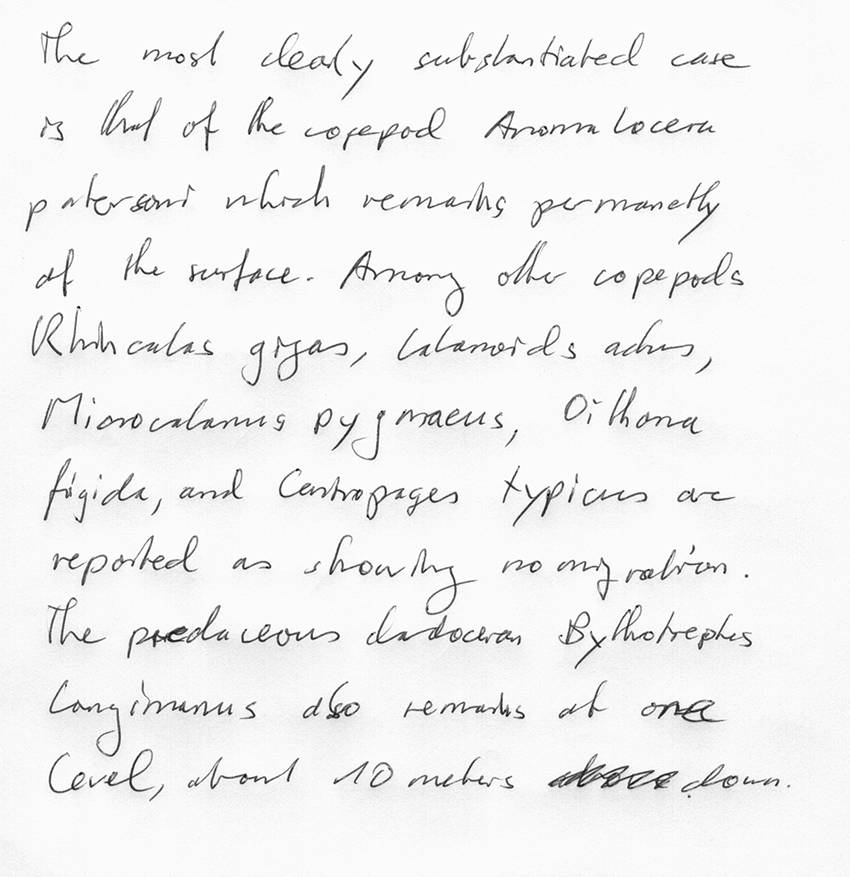 The most clearly substantiated case
is that of the copepod Anomalocera
patersoni which remains permanetly
at the surface. Among other copepods
Rhincalas gigas, Calanoids acus,
Microcalanus pygmaeus, Oithona
frigida, and Centropages typicus are
reported as showing no migration.
The predaceous cladoceran Bythotrephes
longimanus also remains at one
level, about 10 meters down.